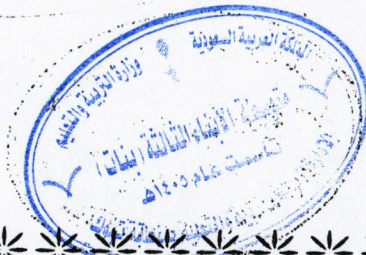 المملكة العربية السعودية
وزارة التربية والتعليم
متوسطة الأبناء الثالثة (بنات)
تأسست عام ١٤٠٥هـ